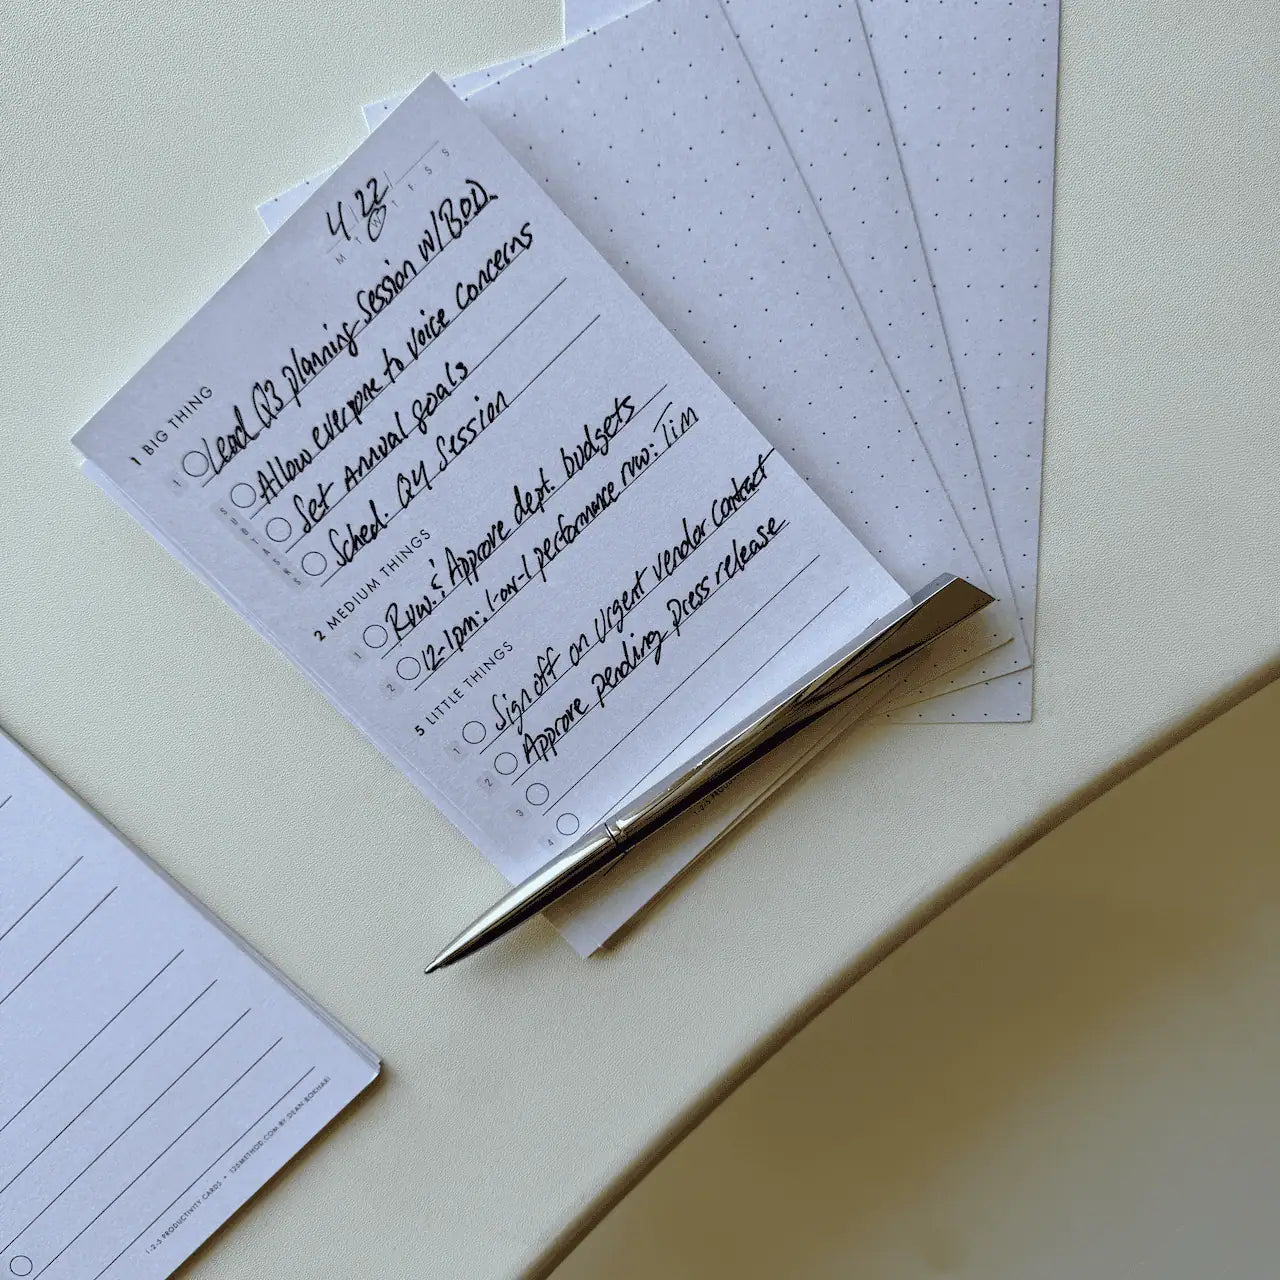 4/22/
M T W T F S S
1 BIG THING
1 Lead Q3 planning session w/ B.O.D.
SUBTASKS
Allow everyone to voice concerns
Set annual goals
Sched. Q4 session
2 MEDIUM THINGS
1 Rvw. & Approve dept. budgets
2 12-1pm: 1-on-1 performance rvw: Tim
5 LITTLE THINGS
1 Sign off on urgent vendor contract
2 Approve pending press release
3
4
1-2-5 PRODU
1-2-5 PRODUCTIVITY CARDS • 125METHOD.COM BY DEAN BOKHARI